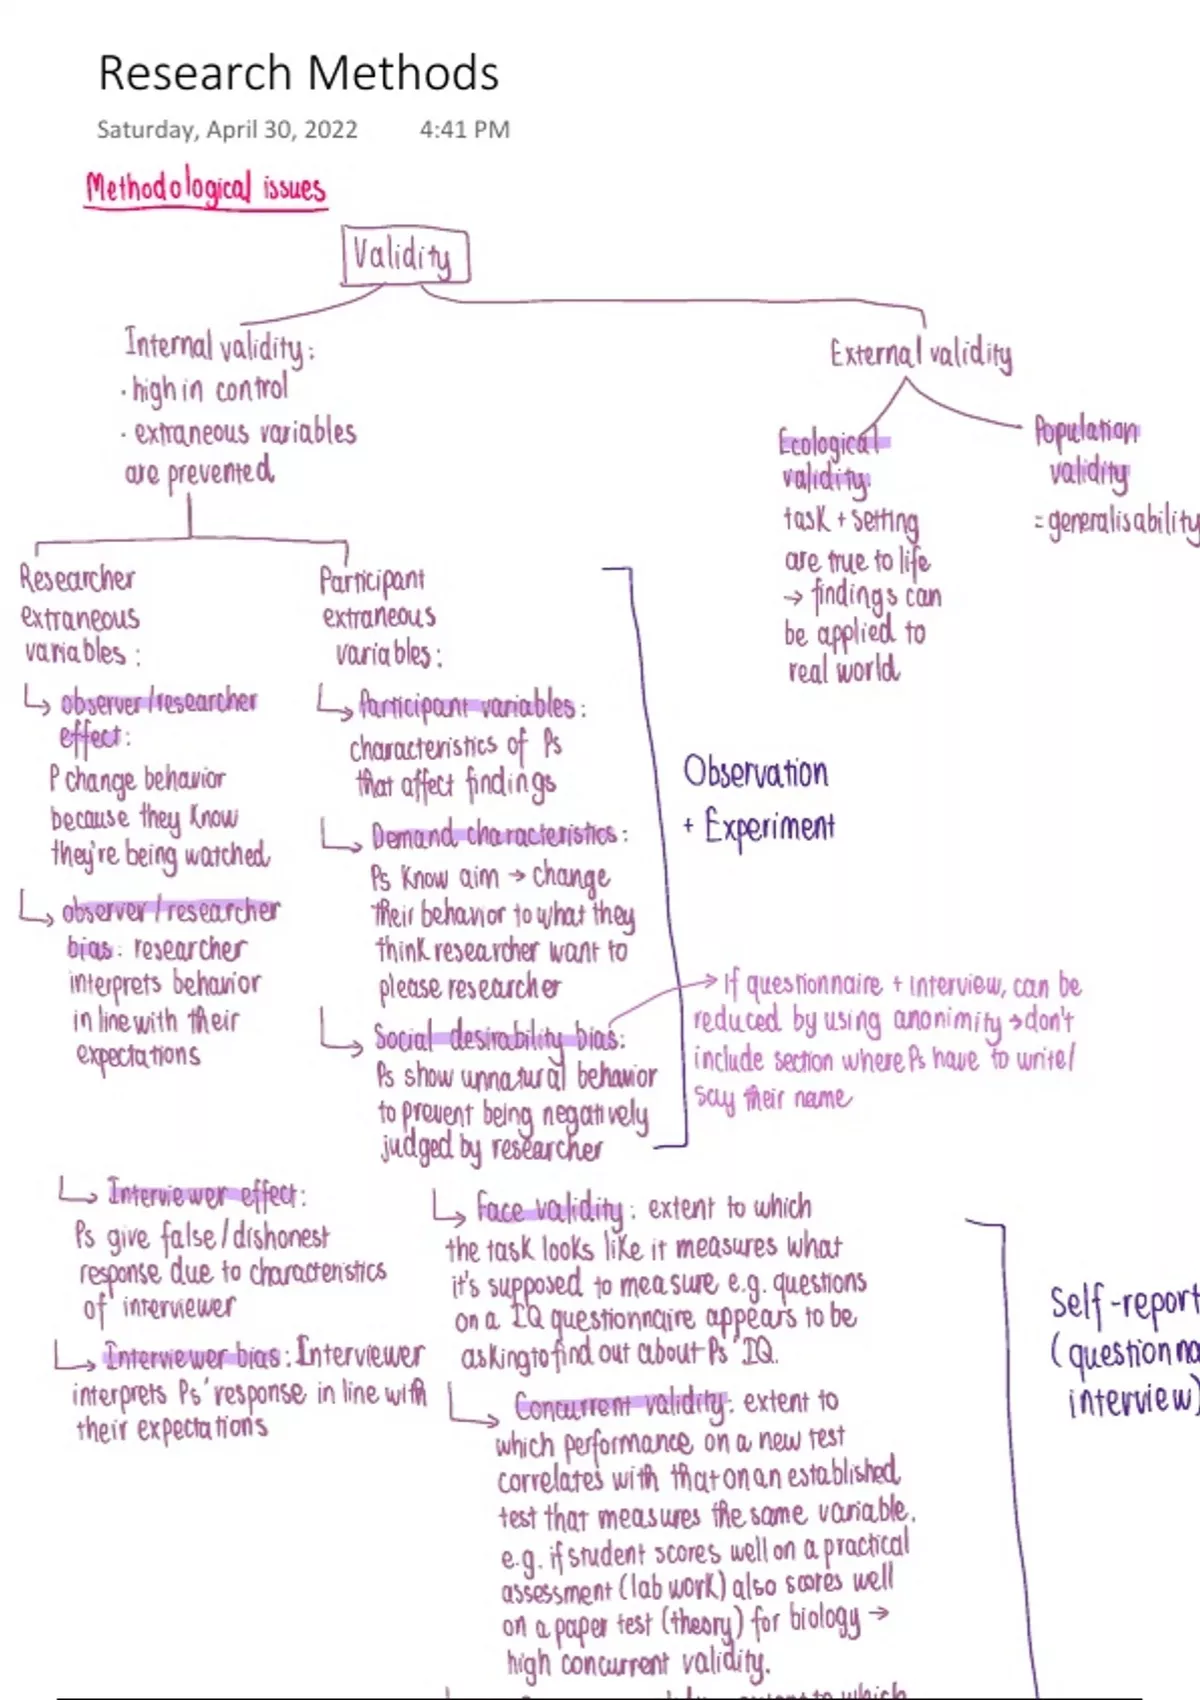 Research Methods
Saturday, April 30, 2022 4:41 PM
Methodological issues
Validity
Internal validity:
· high in control
· extraneous variables
are prevented
External validity
Ecological
validity:
task + setting
are true to life
→ findings can
be applied to
real world
Population
validity
= generalisability
Researcher
extraneous
variables:
↳ observer/researcher
effect:
P change behavior
because they know
they're being watched
↳ observer/researcher
bias: researcher
interprets behavior
in line with their
expectations
Participant
extraneous
variables:
↳ Participant variables:
characteristics of Ps
that affect findings
↳ Demand characteristics:
Ps know aim → change
their behavior to what they
think researcher want to
please researcher
↳ Social desirability bias:
Ps show unnatural behavior
to prevent being negatively
judged by researcher
Observation
+ Experiment
→ If questionnaire + interview, can be
reduced by using anonimity → don't
include section where Ps have to write/
say their name
↳ Interviewer effect:
Ps give false/dishonest
response due to characteristics
of interviewer
↳ Interviewer bias: Interviewer
interprets Ps' response in line with
their expectations
↳ Face validity: extent to which
the task looks like it measures what
it's supposed to measure e.g. questions
on a IQ questionnaire appears to be
asking to find out about Ps' IQ.
↳ Concurrent validity: extent to
which performance on a new test
correlates with that on an established
test that measures the same variable.
e.g. if student scores well on a practical
assessment (lab work) also scores well
on a paper test (theory) for biology →
high concurrent validity.
Self-report
(questionna
interview)
extent to which